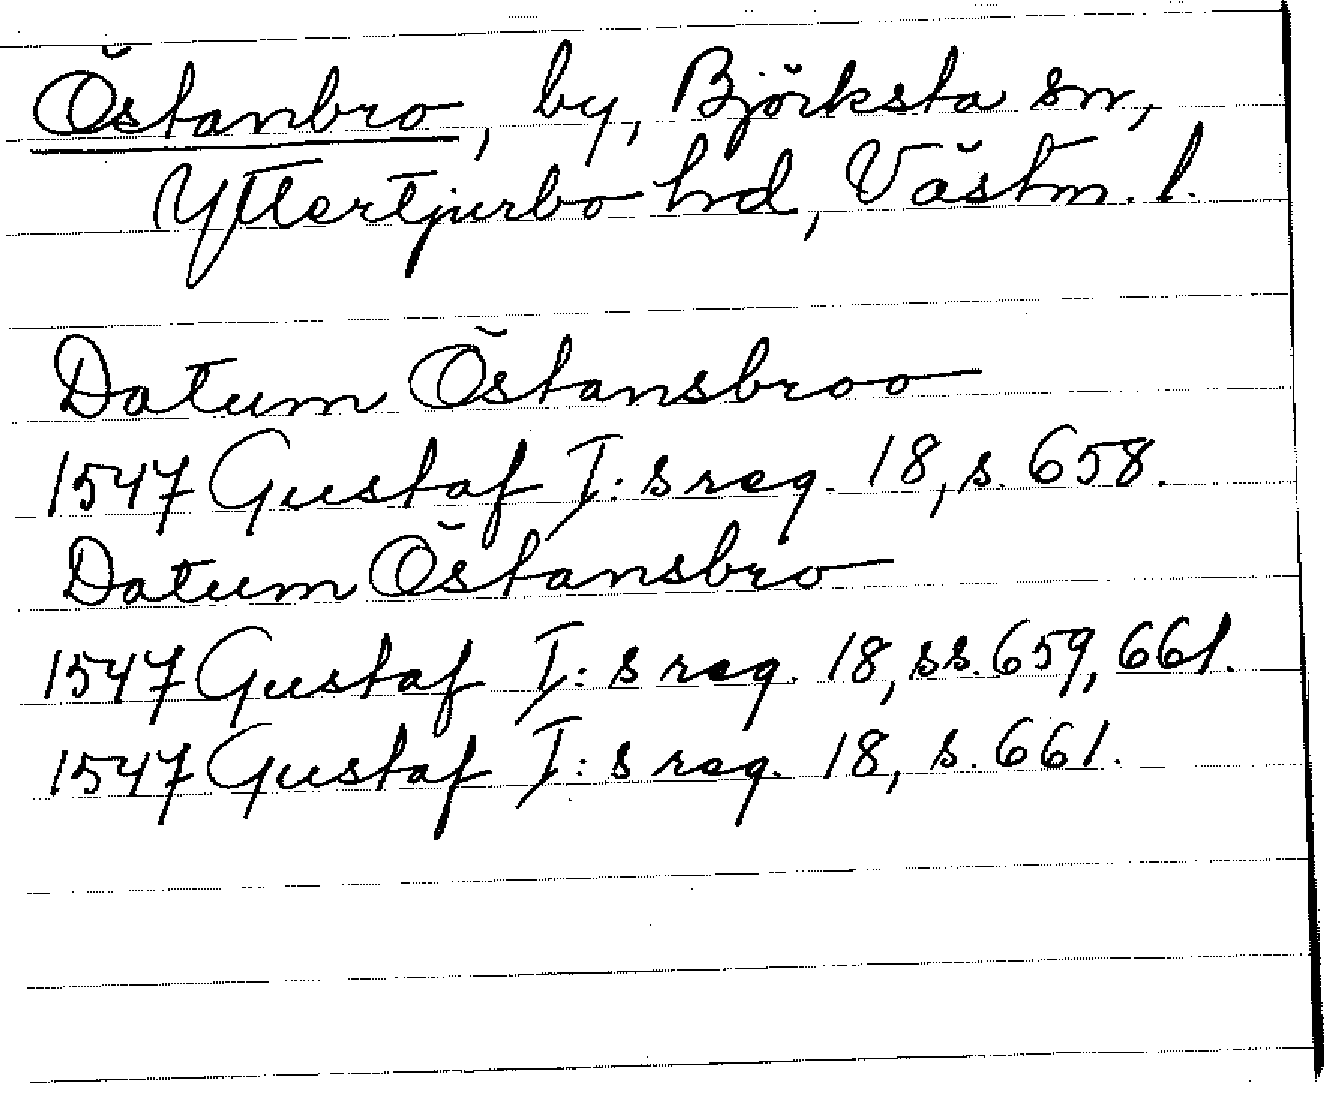 Östanbro, by, Björksta sn,
Yttertjurbo hd, Västm. l.
Datum Östansbroo
1547 Gustaf I:s reg. 18, s. 658.
Datum Östansbro
1547 Gustaf I:s reg. 18, ss. 659, 661.
1547 Gustaf I:s reg. 18, s. 661.